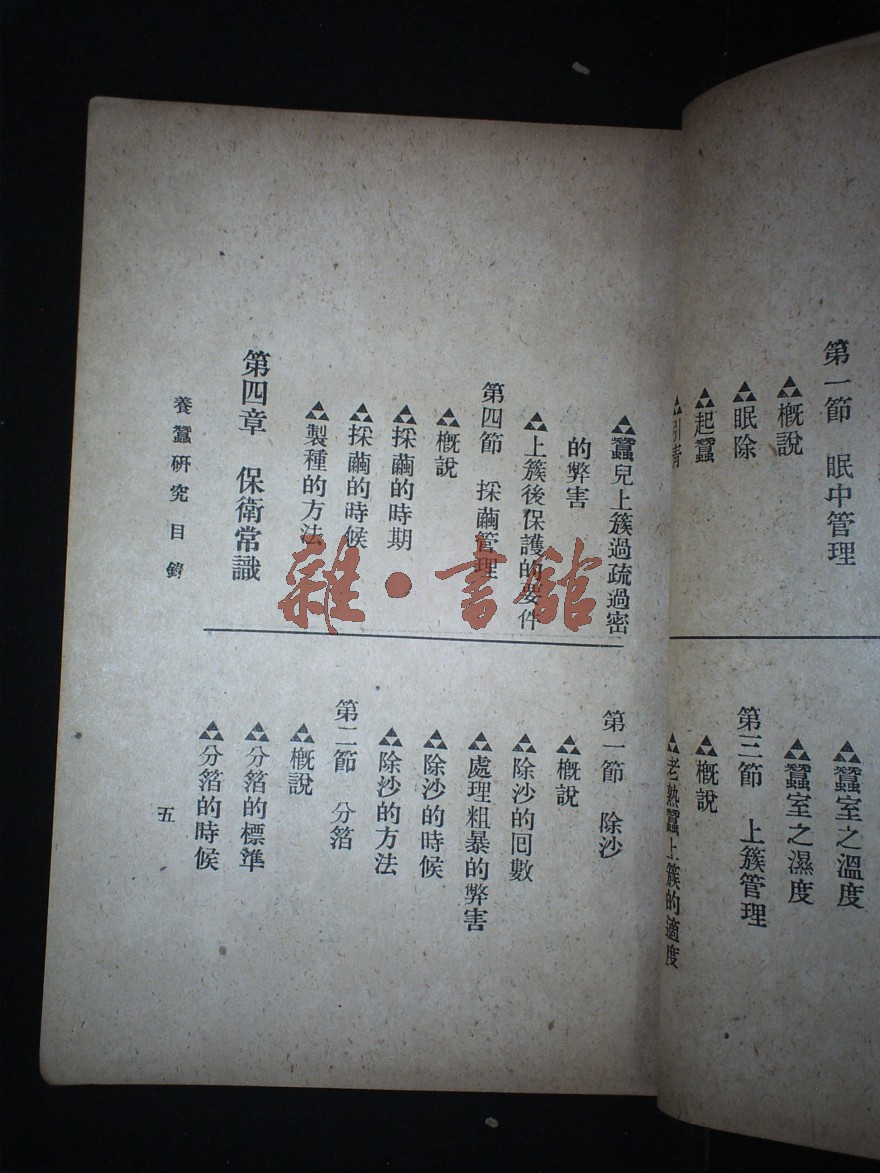 第一節　眠中管理
概說
眠除
起蠶
引青
蠶室之溫度
蠶室之濕度
第三節　上簇管理
概說
老熟蠶上簇的適度
蠶兒上簇過疏過密
的弊害
上簇後保護的要件
第四節　採繭管理
概說
採繭的時期
採繭的時候
製種的方法
第四章　保衛常識
第一節　除沙
概說
除沙的回數
處理粗暴的弊害
除沙的時候
除沙的方法
第二節　分箔
概說
分箔的標準
分箔的時候
養蠶研究目錄
五
雜·書館